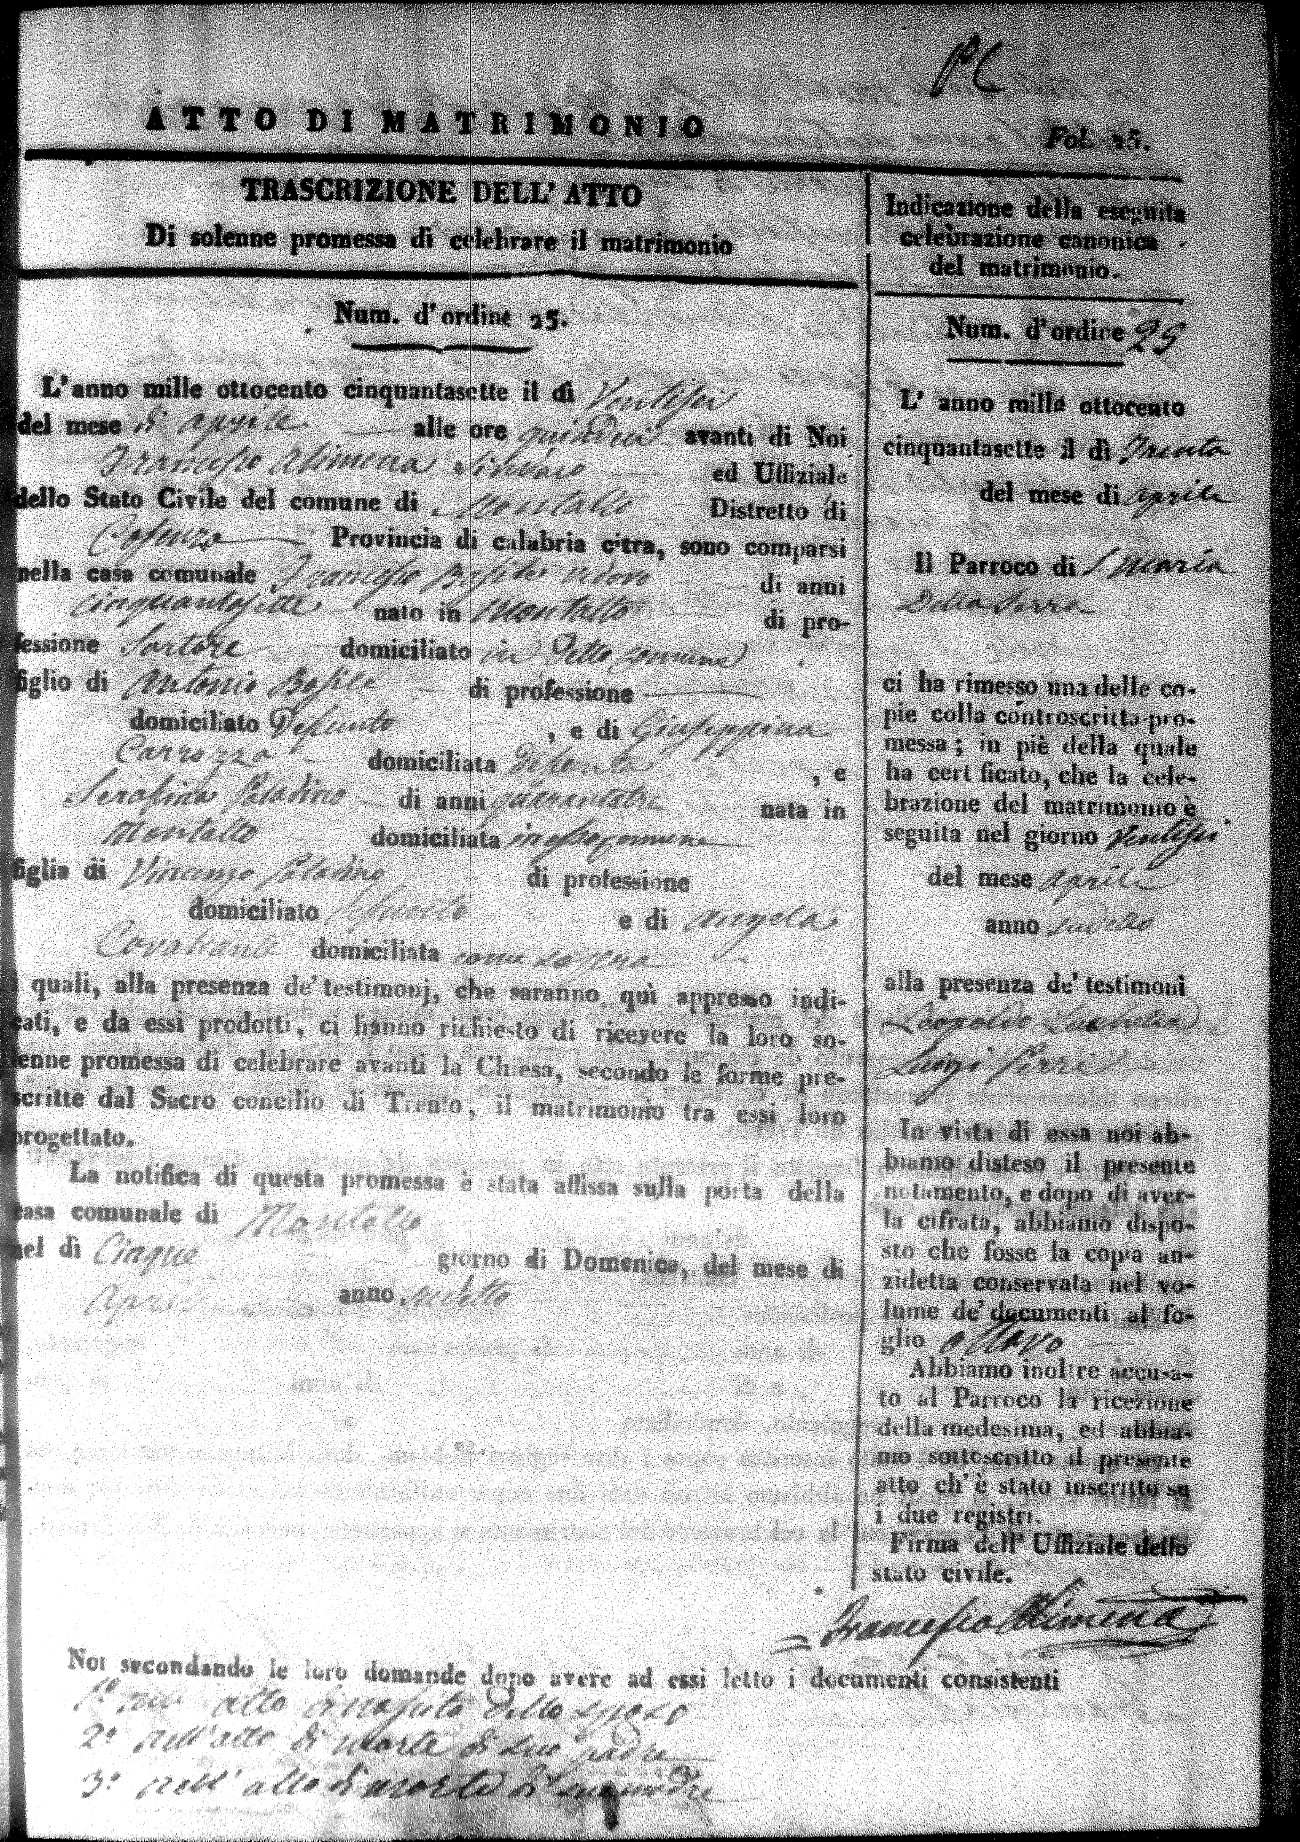 ATTO DI MATRIMONIO
Fol. 25.
TRASCRIZIONE DELL' ATTO
Di solenne promessa di celebrare il matrimonio
Num. d'ordine 25.
L'anno mille ottocento cinquantasette il dì Ventisei
del mese di aprile alle ore quindici avanti di Noi
Francesco Alimena Sindaco ed Uffiziale
dello Stato Civile del comune di Montalto Distretto di
Cosenza Provincia di calabria citra, sono comparsi
nella casa comunale Francesco Basile vedovo di anni
cinquantasette nato in Montalto di pro-
fessione Sartore domiciliato in detto comune
figlio di Antonio Basile di professione
domiciliato Defunto , e di Giuseppina
Carrozza domiciliata defunta , e
Serafina Paladino di anni quarantatre nata in
Montalto domiciliata in esso comune
figlia di Vincenzo Paladino di professione
domiciliato defunto e di Angela
domiciliata come sopra
i quali, alla presenza de' testimonj, che saranno quì appresso indi-
cati, e da essi prodotti, ci hanno richiesto di ricevere la loro so-
lenne promessa di celebrare avanti la Chiesa, secondo le forme pre-
scritte dal Sacro concilio di Trento, il matrimonio tra essi loro
progettato.
La notifica di questa promessa è stata affissa sulla porta della
casa comunale di Montalto
nel dì Cinque giorno di Domenica, del mese di
Aprile anno suddetto
Indicazione della eseguita
celebrazione canonica
del matrimonio.
Num. d'ordice 25
L' anno mille ottocento
cinquantasette il dì Trenta
del mese di aprile
Il Parroco di S Maria
Della Serra
ci ha rimesso una delle co-
pie colla controscritta pro-
messa; in piè della quale
ha cert ficato, che la cele-
brazione del matrimonio è
seguita nel giorno ventisei
del mese aprile
anno
alla presenza de' testimoni
Leopoldo
Luigi Pirri
In vista di essa noi ab-
biamo disteso il presente
notamento, e dopo di aver-
la cifrata, abbiamo dispo-
sto che fosse la copia an-
zidetta conservata nel vo-
lume de' documenti al fo-
glio ottavo
Abbiamo inoltre accusa-
to al Parroco la ricezione
della medesima, ed abbia-
mo sottoscritto il presente
atto ch' è stato inscritto su
i due registri.
Firma dell' Uffiziale dello
stato civile.
Francesco Alimena
Noi secondando le loro domande dopo avere ad essi letto i documenti consistenti
1° nell' atto di nascita dello sposo
2° nell' atto di morte di suo padre
3° nell' atto di morte di sua madre